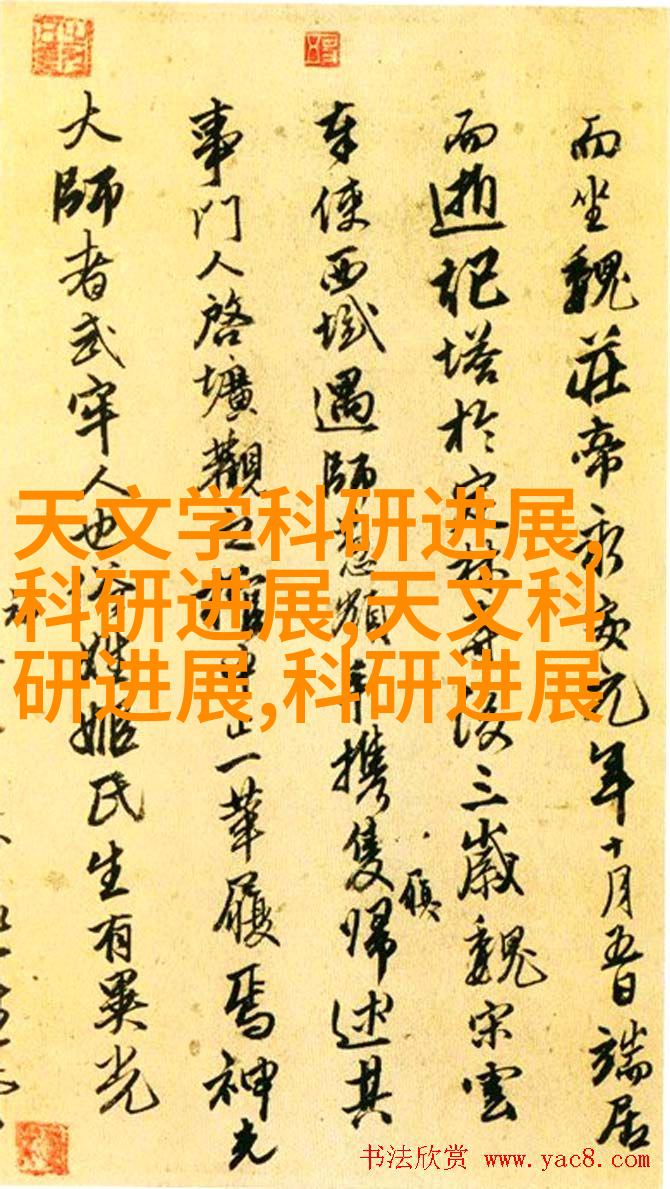 而坐魏莊帝永安元年十月五日端居
而逝記塔於定林寺後三歲魏宋雲
奉使西域遇師葱嶺手攜隻歸述其
履
事門人啓壙觀之止一革履焉神光
大師者武牢人也俗姓姬氏生有異光
天文学科研进展,
科研进展,天文科
研进展,科研进展
书法欣赏 www.yac8.com